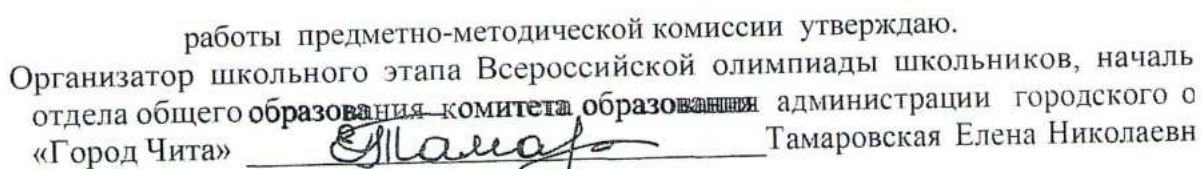 работы предметно-методической комиссии утверждаю.
Организатор школьного этапа Всероссийской олимпиады школьников, началь
отдела общего образования комитета образования администрации городского о
«Город Чита» Тамаровская Елена Николаевн